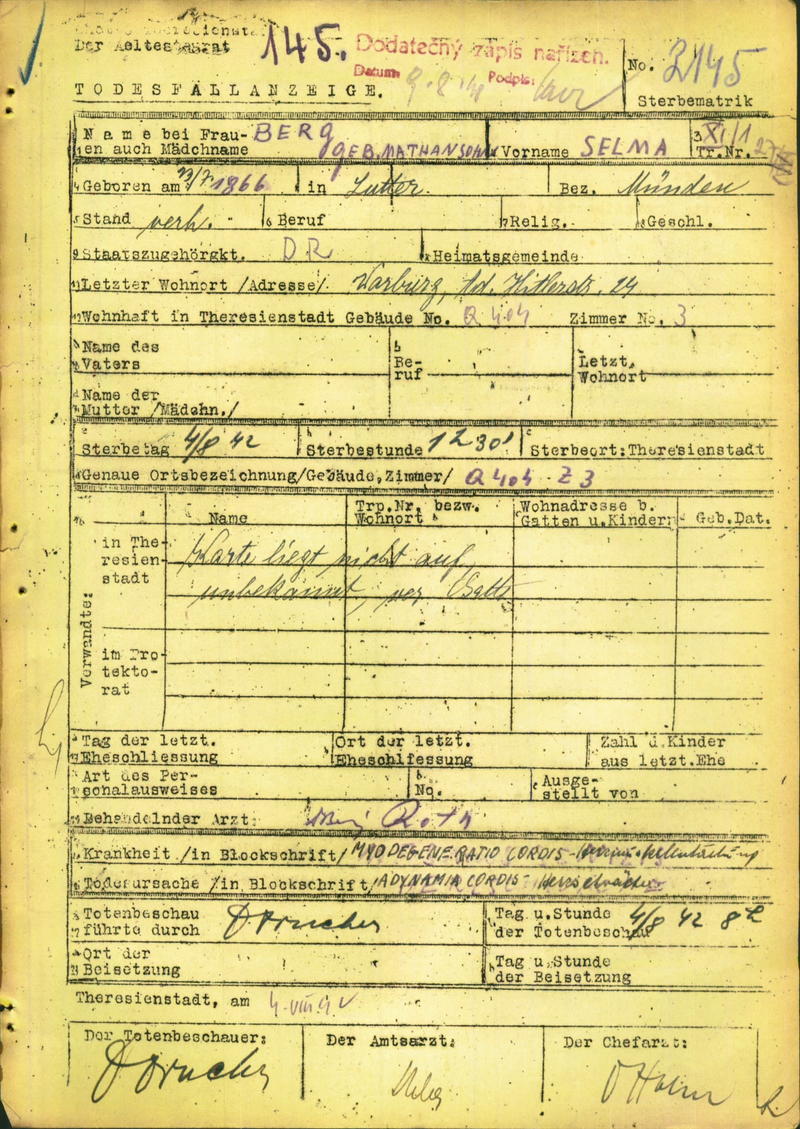 Der Aeltestenrat
145.
Dodatečný zápis nařízen.
Datum Podpis:
No. 2145
TODESFALLANZEIGE.
Sterbematrik
Name bei Frau- BERG
en auch Mädchname GEB. MATHANSOHN Vorname SELMA XI/1
Tr.Nr.
Geboren am 1866 in Lutter. Bez. Münden
Stand verh. Beruf Relig. Geschl.
Staatszugehörgkt. DR Heimatsgemeinde
Letzter Wohnort /Adresse/ Warburg, Ad. Hitlerstr. 24
Wohnhaft in Theresienstadt Gebäude No. Q 404 Zimmer No. 3
Name des Be- Letzt.
Vaters ruf Wohnort
Name der
Mutter /Mädchn./
Sterbetag 4/8 42 Sterbestunde 12 30' Sterbeort: Theresienstadt
Genaue Ortsbezeichnung/Gebäude, Zimmer/ Q 404 Z 3
Name Trp.Nr. bezw. Wohnort Wohnadresse b. Gatten u.Kindern Geb.Dat.
Verwandte:
in The-
resien-
stadt
Karte liegt nicht auf,
unbekannt,
im Pro-
tekto-
rat
Tag der letzt. Ort der letzt. Zahl d.Kinder
Eheschliessung Eheschliessung aus letzt.Ehe
Art des Per- No. Ausge-
sonalausweises stellt von
Behandelnder Arzt: Roth
Krankheit /in Blockschrift/ MYODEGENERATIO CORDIS -
Todesursache /in Blockschrift/ ADYNAMIA CORDIS - Herzschwäche
Totenbeschau Tag u.Stunde 4/8 42 8h
führte durch der Totenbeschau
Ort der Tag u.Stunde
Beisetzung der Beisetzung
Theresienstadt, am 4.VIII.42
Der Totenbeschauer: Der Amtsarzt: Der Chefarzt: